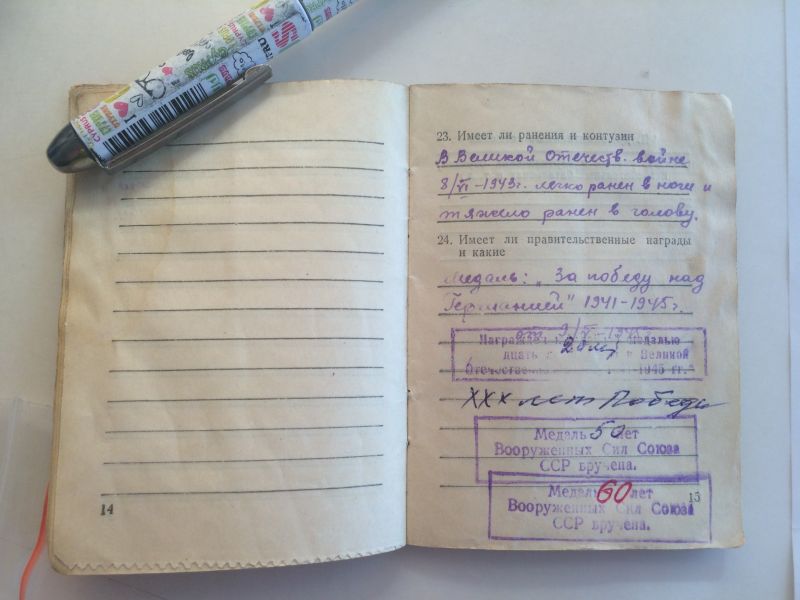 I
CYPRUS
23. Имеет ли ранения и контузии
В Великой Отечеств. войне
8/VI-1943г. легко ранен в ноги и
тяжело ранен в голову.
24. Имеет ли правительственные награды
и какие
Медаль: „За победу над
Германией" 1941-1945г.
от 9/V-1945г.
медалью
дцать 20 лет в Великой
Отечествен 1945 гг."
XXX лет Победы
Медаль 50 лет
Вооруженных Сил Союза
ССР вручена.
Медаль 60 лет
Вооруженных Сил Союза
ССР вручена.
14
15